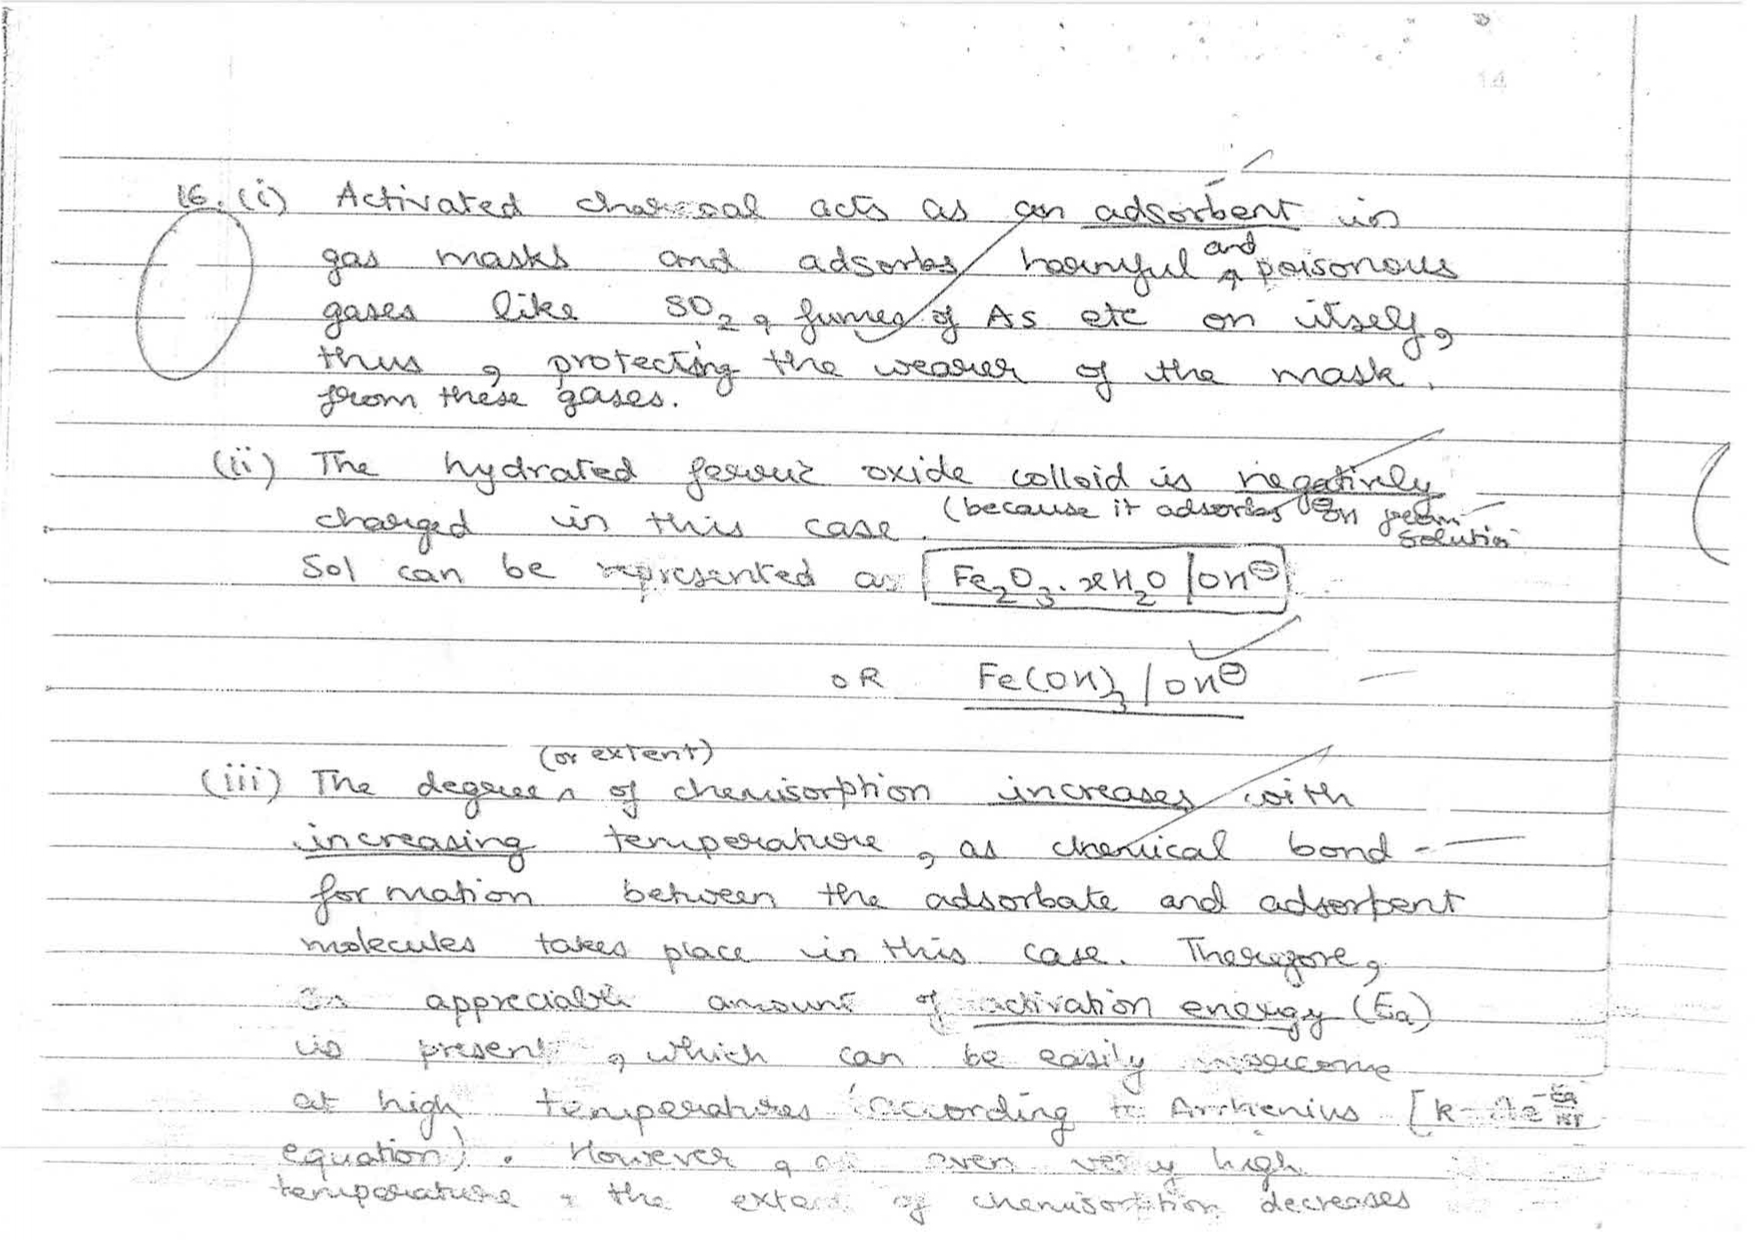 14
16. (i) Activated charcoal acts as an adsorbent in
gas masks and adsorbs harmful and poisonous
gases like SO₂, fumes of As etc on itself,
thus, protecting the wearer of the mask.
from these gases.
(ii) The hydrated ferric oxide colloid is negatively
charged in this case. (because it adsorbs OH⊖ from solution
Sol can be represented as Fe₂O₃.xH₂O | OH⊖
OR Fe(OH)₃ / OH⊖
(iii) The degree (or extent) of chemisorption increases with
increasing temperature, as chemical bond -
formation between the adsorbate and adsorbent
molecules takes place in this case. Therefore,
appreciable amount of activation energy (Ea)
is present, which can be easily overcome
at high temperatures (according to Arrhenius [k = Ae^-Ea/RT
equation). However, even very high
temperature, the extent of chemisorption decreases